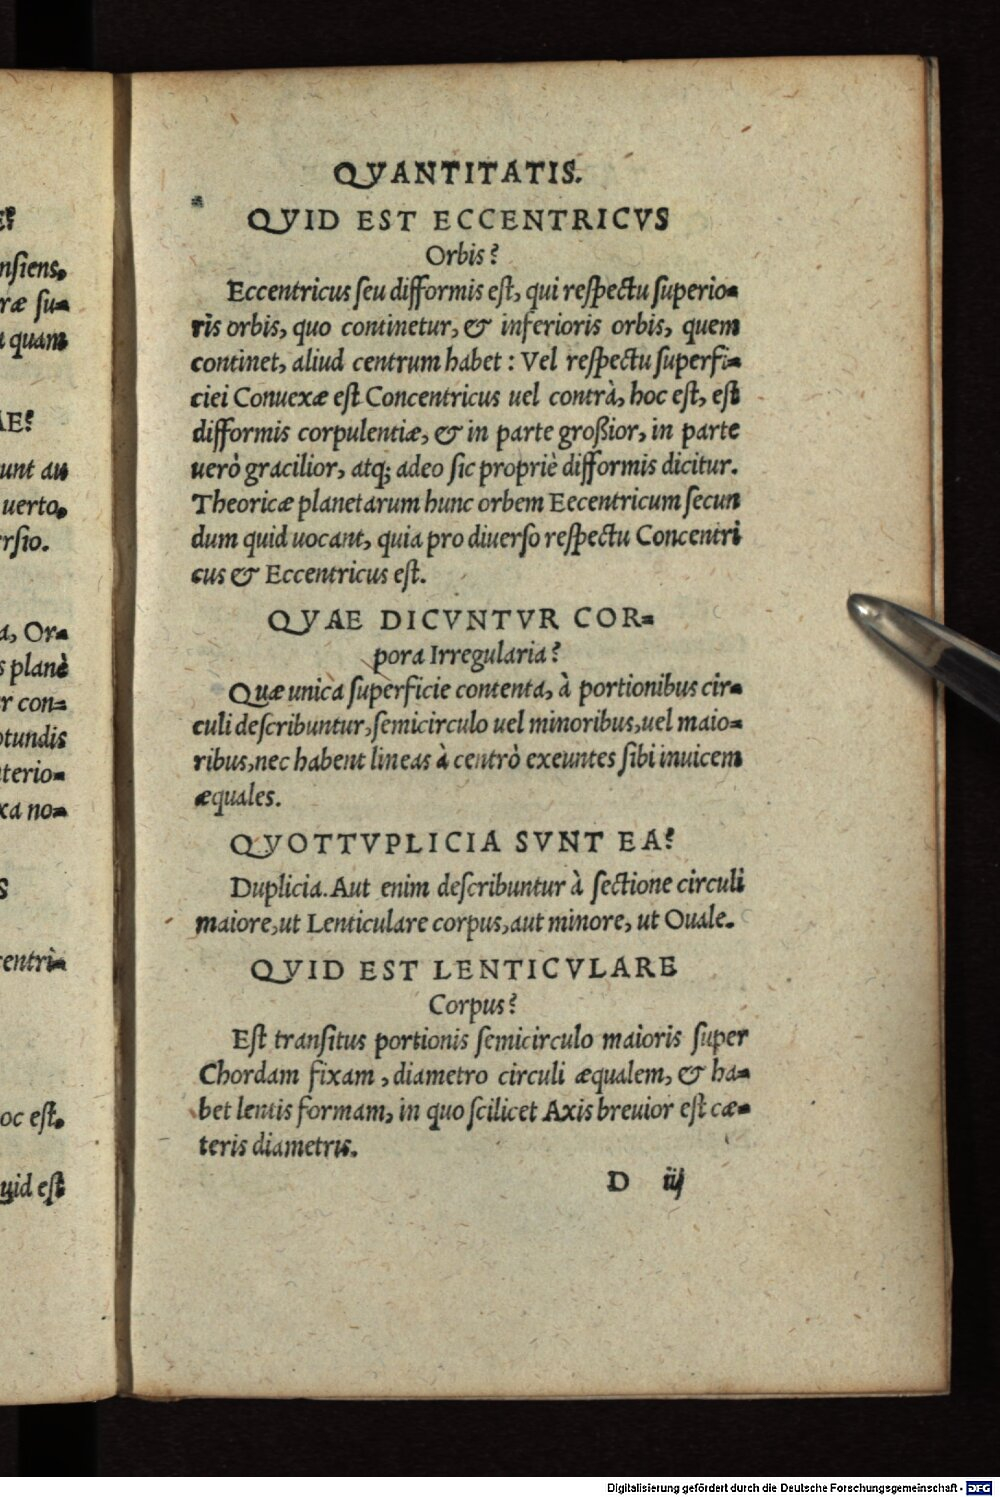 QVANTITATIS.
QVID EST ECCENTRICVS
Orbis?
Eccentricus seu difformis est, qui respectu superio-
ris orbis, quo continetur, & inferioris orbis, quem
continet, aliud centrum habet: Vel respectu superfi-
ciei Conuexæ est Concentricus uel contrà, hoc est, est
difformis corpulentiæ, & in parte großior, in parte
uerò gracilior, atq; adeo sic propriè difformis dicitur.
Theoricæ planetarum hunc orbem Eecentricum secun
dum quid uocant, quia pro diuerso respectu Concentri
cus & Eccentricus est.
QVAE DICVNTVR COR-
pora Irregularia?
Quæ unica superficie contenta, à portionibus cir-
culi describuntur, semicirculo uel minoribus, uel maio-
ribus, nec habent lineas à centrò exeuntes sibi inuicem
æquales.
QVOTTVPLICIA SVNT EA?
Duplicia. Aut enim describuntur à sectione circuli
maiore, ut Lenticulare corpus, aut minore, ut Ouale.
QVID EST LENTICVLARE
Corpus?
Est transitus portionis semicirculo maioris super
Chordam fixam, diametro circuli æqualem, & ha-
bet lentis formam, in quo scilicet Axis breuior est cæ-
teris diametris.
D iij
nsiens,
ræ su-
quam
AE?
unt au
uerto,
rsio.
a, Or-
s planè
r con-
otundis
terio-
xa no-
S
centri-
oc est,
quid est
Digitalisierung gefördert durch die Deutsche Forschungsgemeinschaft - DFG